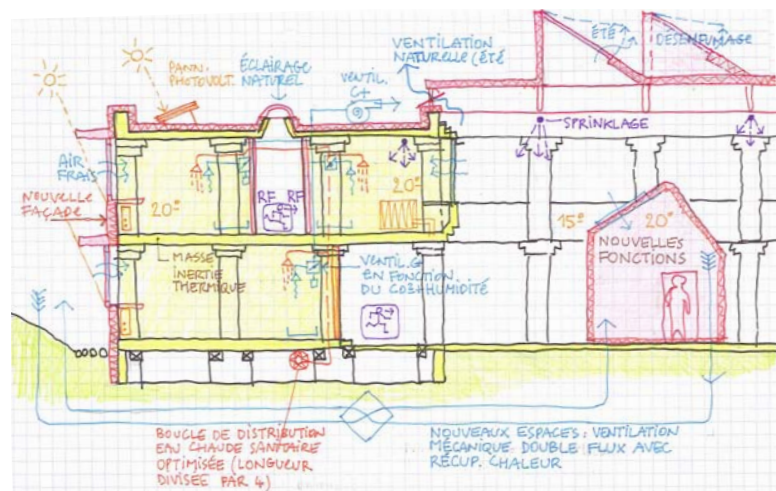 PANN.
PHOTOVOLT.
ÉCLAIRAGE
NATUREL
VENTIL.
C+
VENTILATION
NATURELLE (ÉTÉ
ÉTÉ
DÉSENFUMAGE
SPRINKLAGE
AIR
FRAIS
NOUVELLE
FAÇADE
20°
RF RF
20°
15°
20°
NOUVELLES
FONCTIONS
MASSE
INERTIE
THERMIQUE
EN FONCTION
DU CO2+HUMIDITÉ
BOUCLE DE DISTRIBUTION
EAU CHAUDE SANITAIRE
OPTIMISÉE (LONGUEUR
DIVISÉE PAR 4)
NOUVEAUX ESPACES : VENTILATION
MÉCANIQUE DOUBLE FLUX AVEC
RÉCUP. CHALEUR